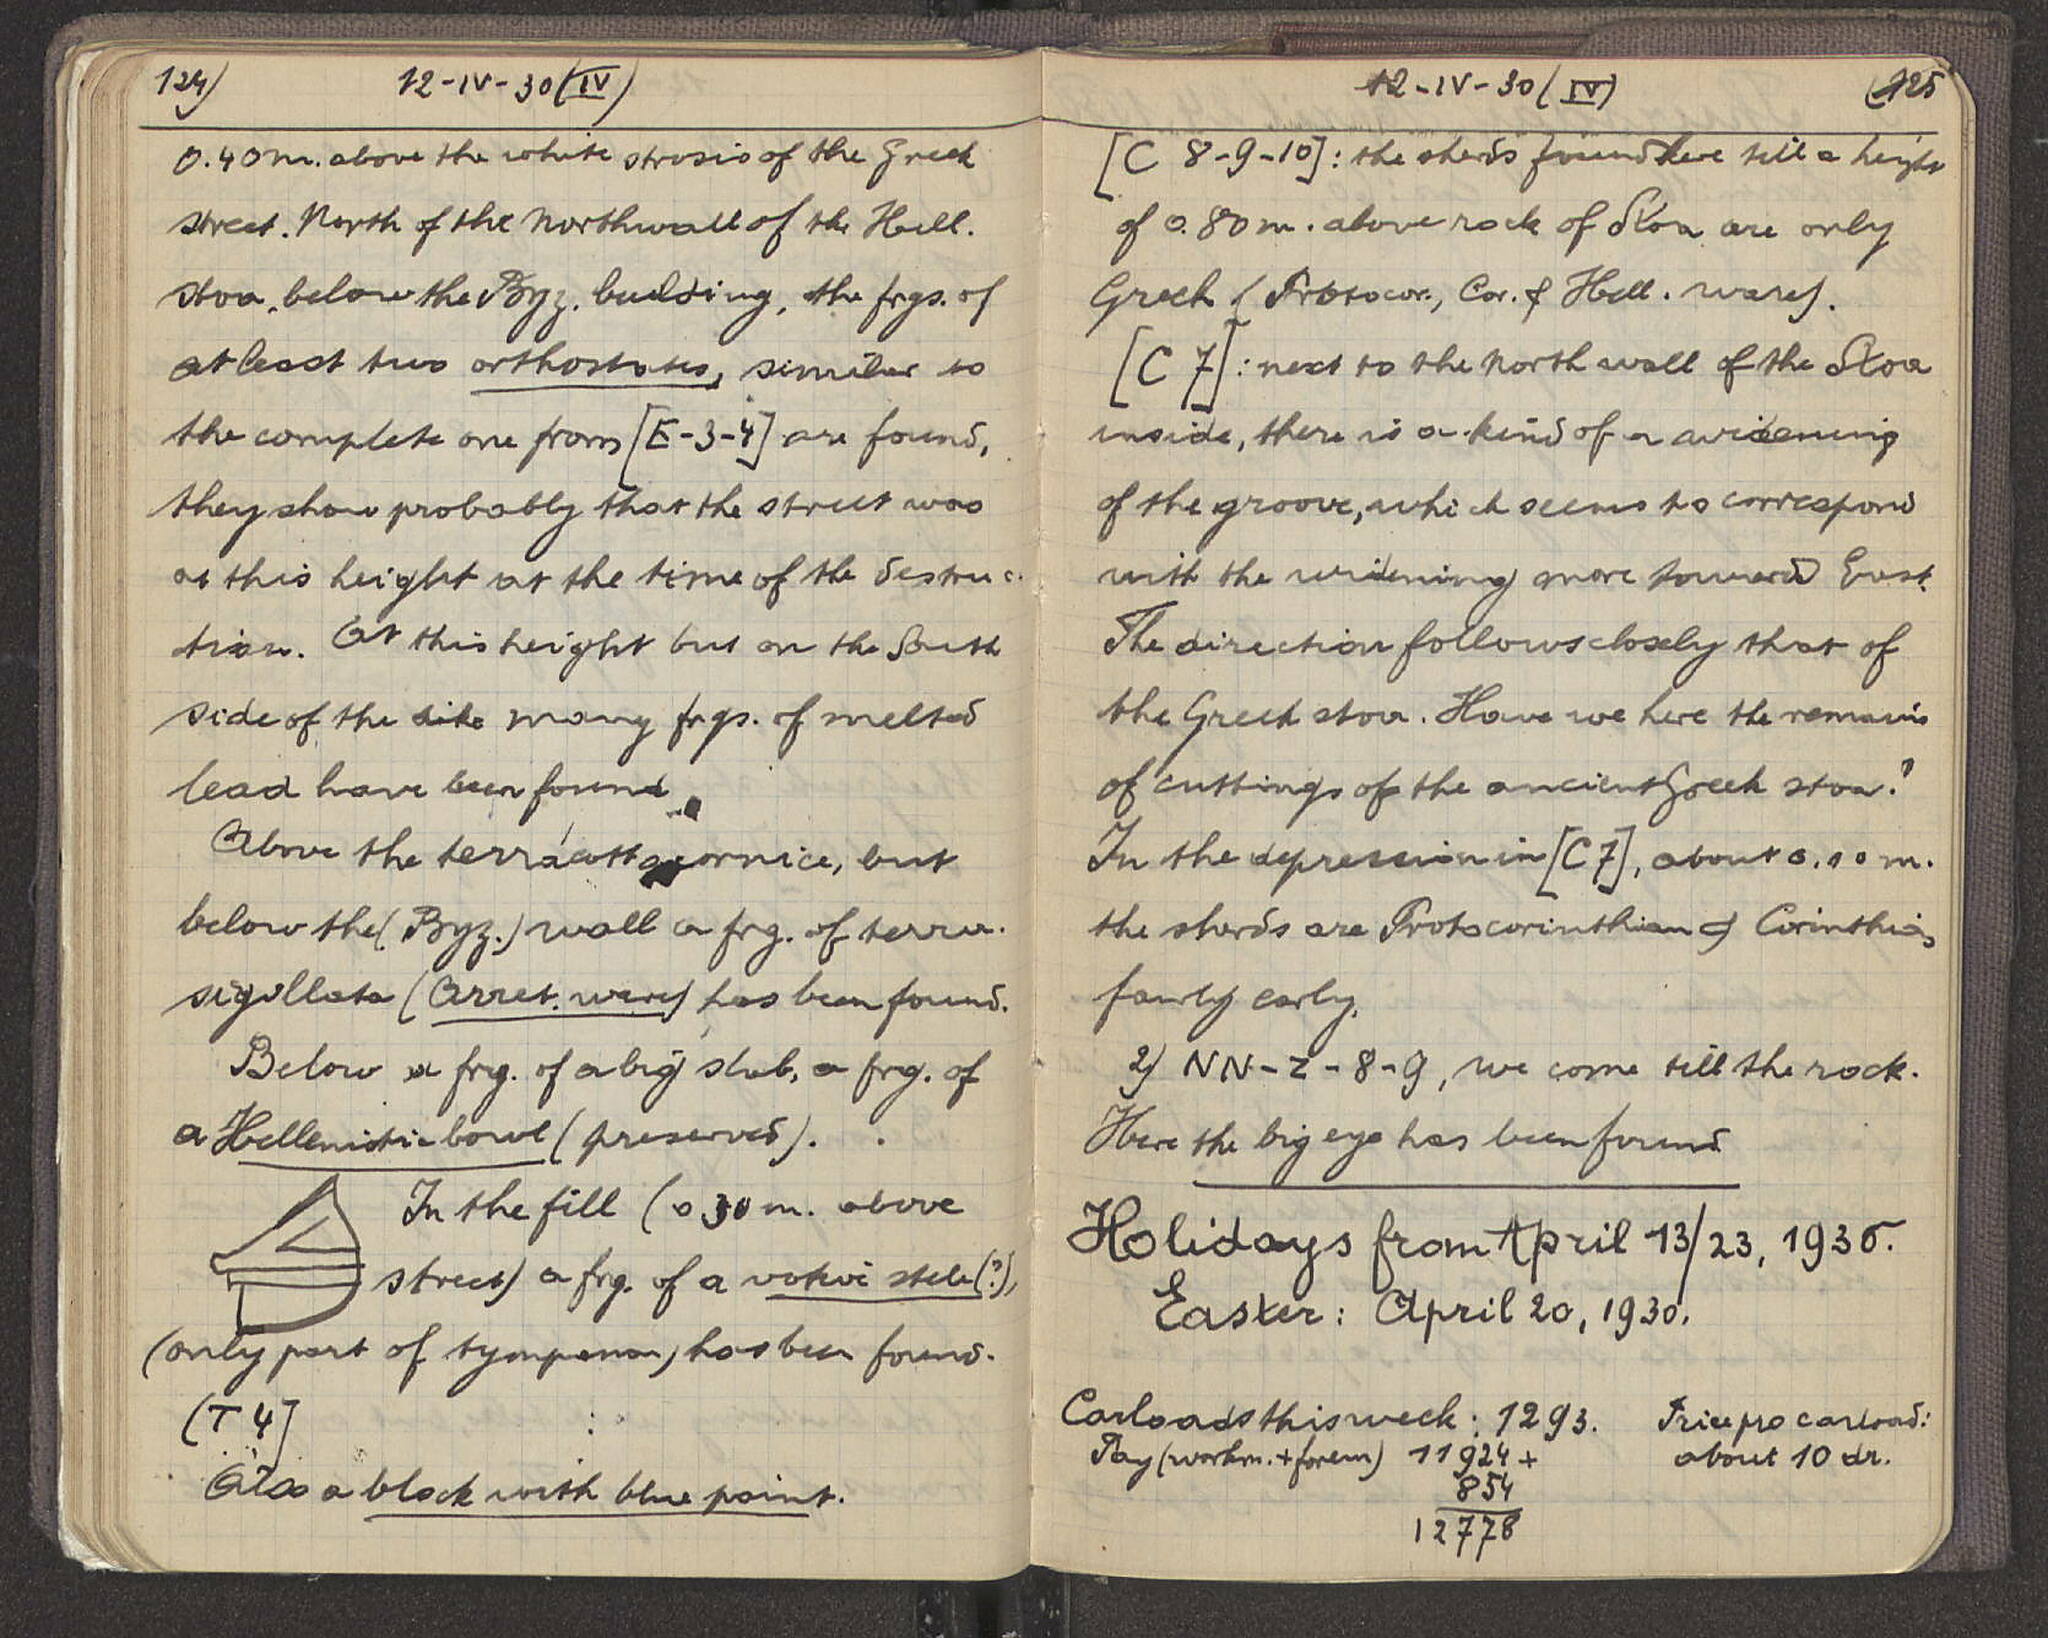 124)
12-IV-30 (IV)
0.40 m. above the white strosis of the Greek
street. North of the Northwall of the Hell.
stoa, below the Byz. building, the frgs. of
at least two orthostates, similar to
the complete one from [E-3-4] are found,
they show probably that the street was
at this height at the time of the destruc-
tion. At this height but on the South
side of the dike many frgs. of melted
lead have been found.
Above the terracotta cornice, but
below the (Byz.) wall a frg. of terra.
sigillata (Arret. ware) has been found.
Below a frg. of a big slab, a frg. of
a Hellenistic bowl (preserved).
In the fill (0.30 m. above
street) a frg. of a votive stele (?),
(only part of tympanon) has been found.
(T 4]
Also a block with blue paint.
12-IV-30 (IV)
(125
[C 8-9-10]: the sherds found here till a height
of 0.80 m. above rock of Stoa are only
Greek (Protocor., Cor. & Hell. ware).
[C 7]: next to the north wall of the Stoa
inside, there is a kind of a widening
of the groove, which seems to correspond
with the widening more toward East.
The direction follows closely that of
the Greek stoa. Have we here the remains
of cuttings of the ancient Greek stoa?
In the depression in [C 7], about 0.10 m.
the sherds are Protocorinthian & Corinthian
fairly early.
2) NN-Z-8-9, we come till the rock.
Here the big eye has been found
Holidays from April 13/23, 1930.
Easter: April 20, 1930.
Carloads this week: 1293. Price pro carload:
Pay (workm. + forem) 11924 + about 10 dr.
854
12778